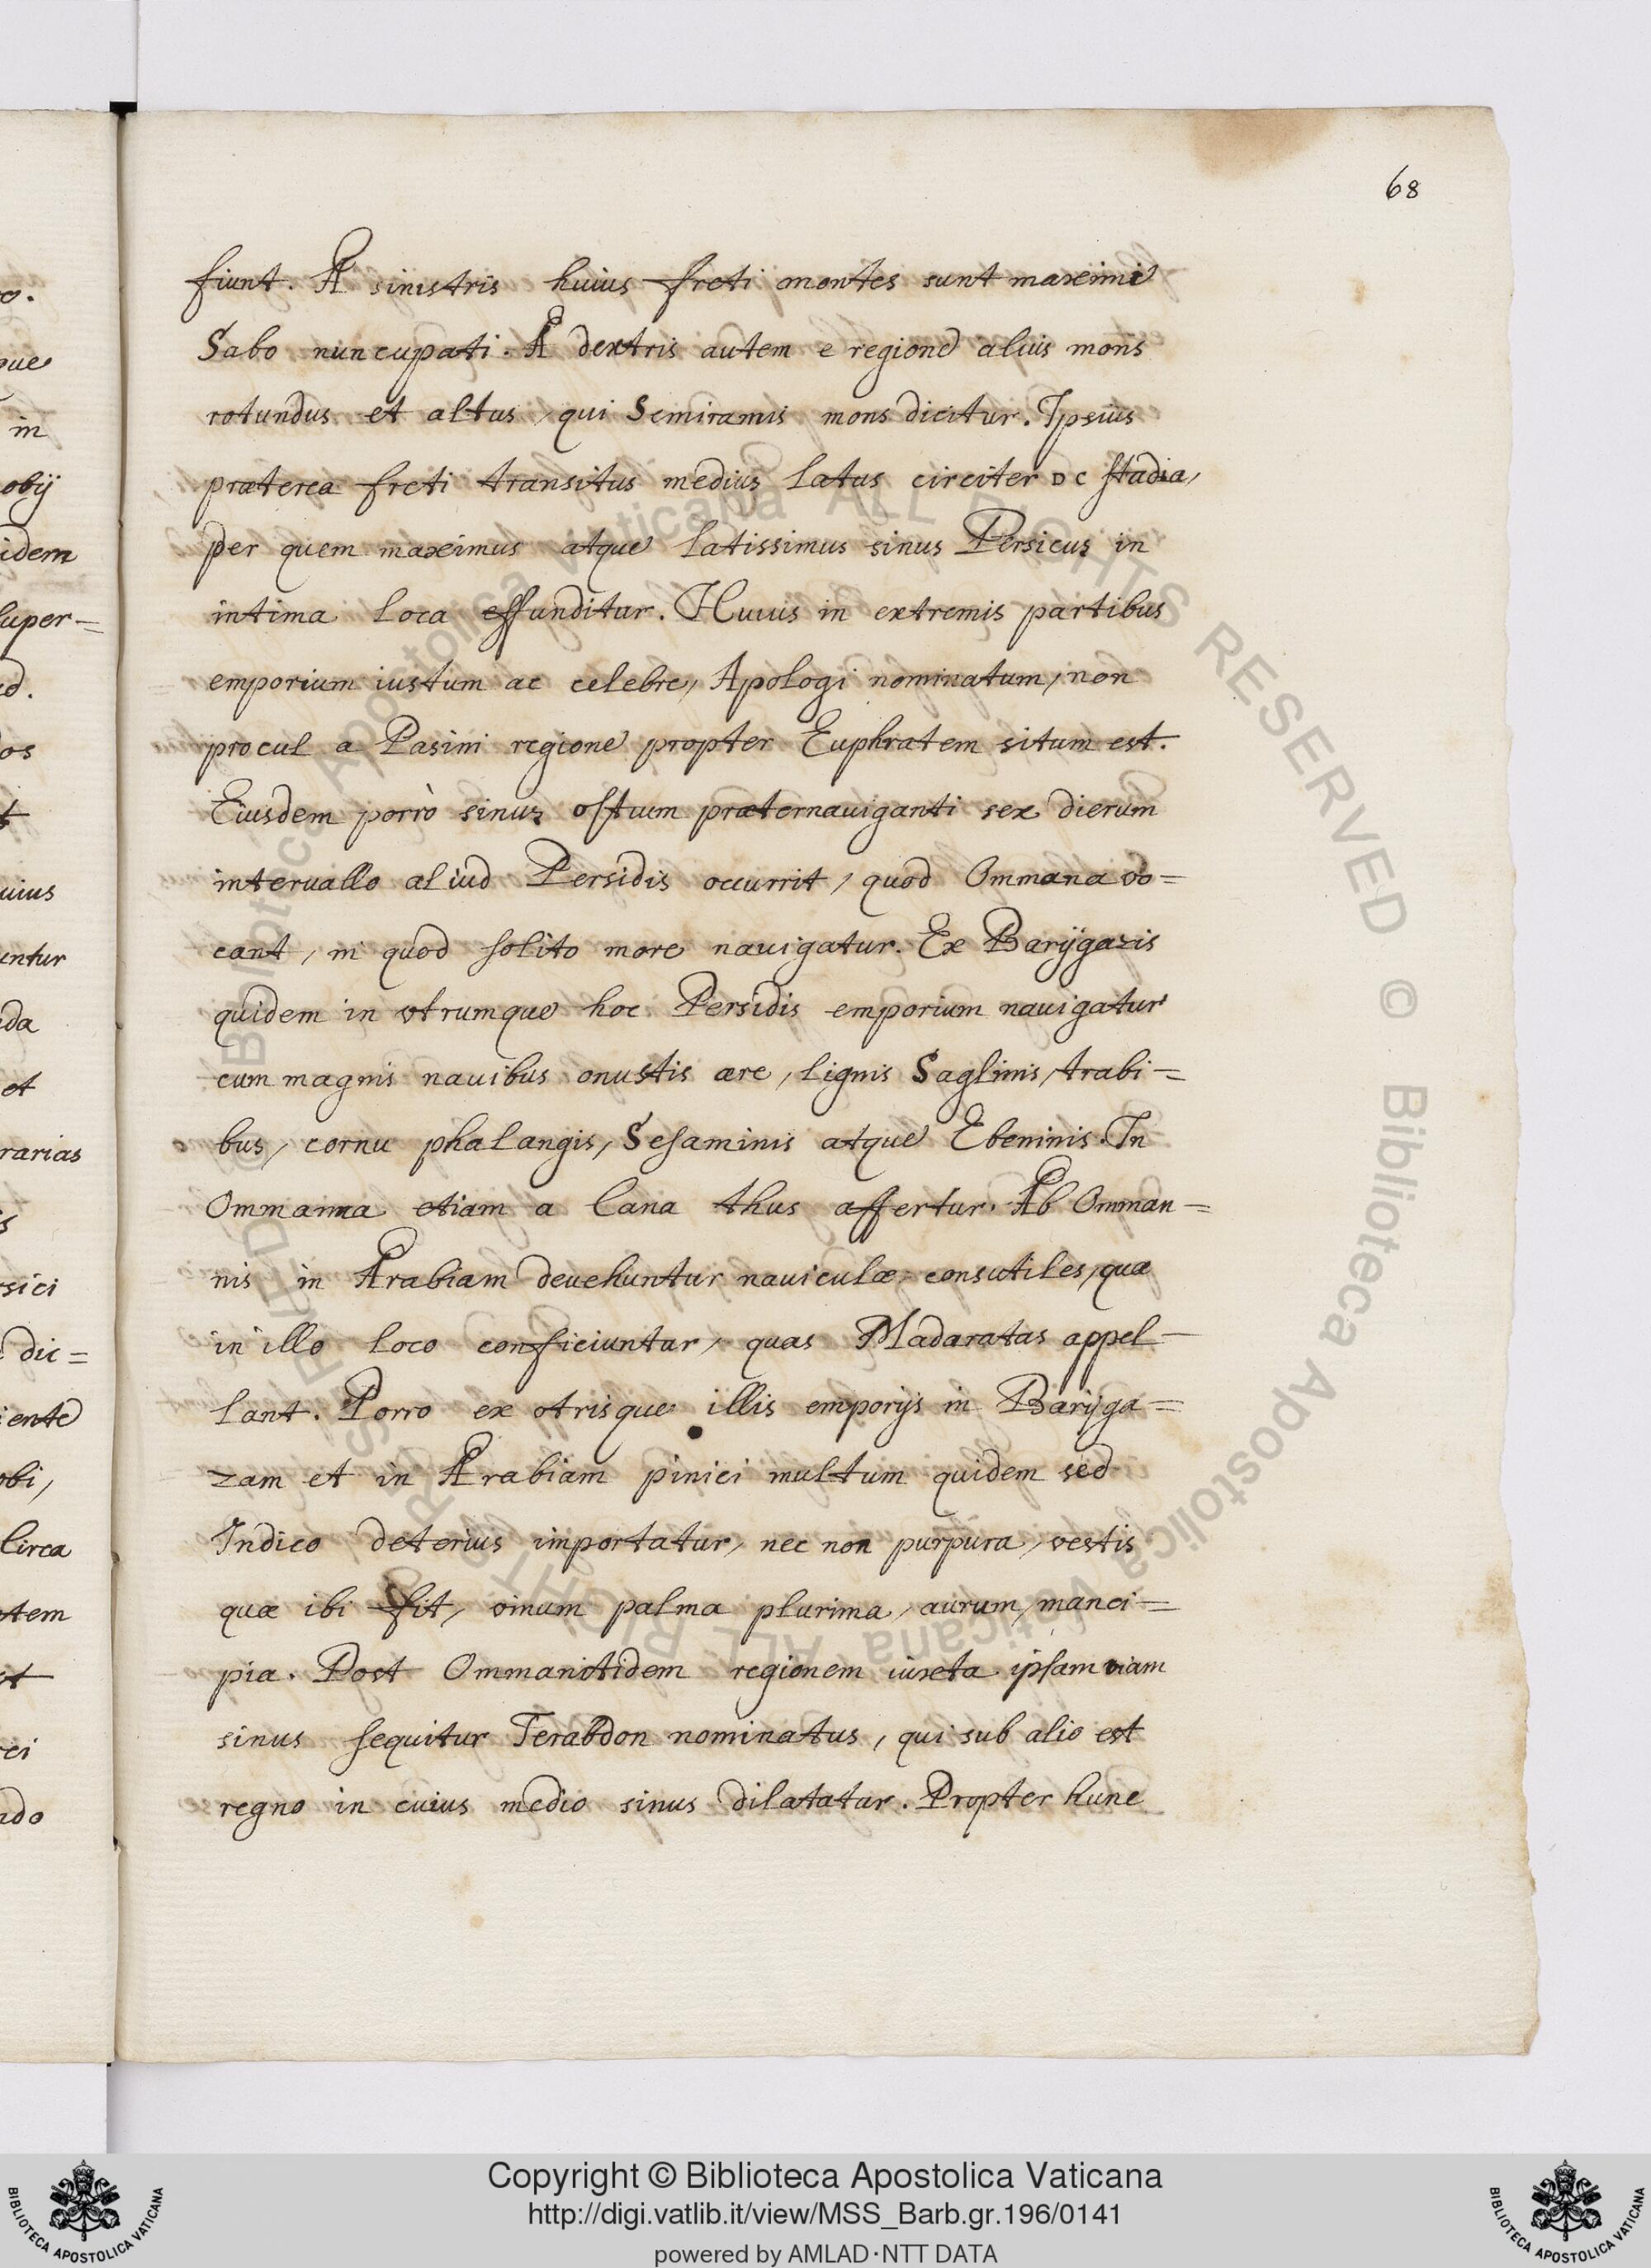 68
fiunt. A sinistris huius freti montes sunt maximi
Sabo nuncupati. A dextris autem e regione alius mons
rotundus et altus, qui Semiramis mons dicitur. Ipsius
præterea freti transitus medius latus circiter DC stadia,
per quem maximus atque latissimus sinus Persicus in
intima loca effunditur. Huius in extremis partibus
emporium iustum ac celebre, Apologi nominatum, non
procul a Pasini regione propter Euphratem situm est.
Eiusdem porrò sinus ostium præternauiganti sex dierum
interuallo aliud Persidis occurrit, quod Ommana vo=
cant, in quod solito more nauigatur. Ex Barÿgazis
quidem in vtrumque hoc Persidis emporium nauigatur
cum magnis nauibus onustis ære, lignis Saglinis, trabi=
bus, cornu phalangis, Sesaminis atque Ebeninis. In
Ommanna etiam a Cana thus affertur. Ab Omman=
nis in Arabiam deuehuntur nauiculæ consutiles, quæ
in illo loco conficiuntur, quas Madaratas appel-
lant. Porro ex vtrisque illis emporijs in Barÿga=
zam et in Arabiam pinici multum quidem sed
Indico deterius importatur, nec non purpura, vestis
quæ ibi fit, vinum palma plurima, aurum, manci=
pia. Post Ommanitidem regionem iuxta ipsam viam
sinus sequitur Terabdon nominatus, qui sub alio est
regno in cuius medio sinus dilatatur. Propter hunc
in
obij
idem
super=
vius
untur
et
rarias
sici
dic=
iente
Circa
Biblioteca Apostolica Vaticana ALL RIGHTS RESERVED © Biblioteca Apostolica Vaticana ALL RIGHTS RESERVED ©
Copyright © Biblioteca Apostolica Vaticana
http://digi.vatlib.it/view/MSS_Barb.gr.196/0141
powered by AMLAD·NTT DATA
BIBLIOTECA APOSTOLICA VATICANA
BIBLIOTECA APOSTOLICA VATICANA